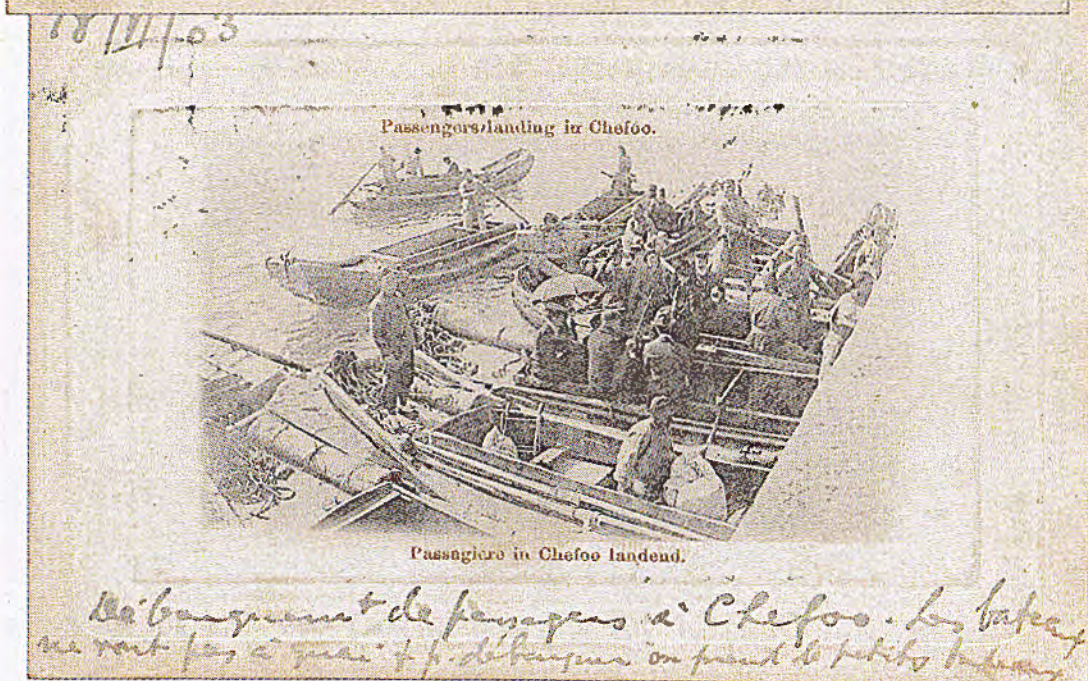 18/VI/03
Passengers landing in Chefoo.
Passagiere in Chefoo landend.
Débarquemt de passagers à Chefoo. Les bateaux
ne vont pas à quai & p. débarquer on prend de petits bateaux